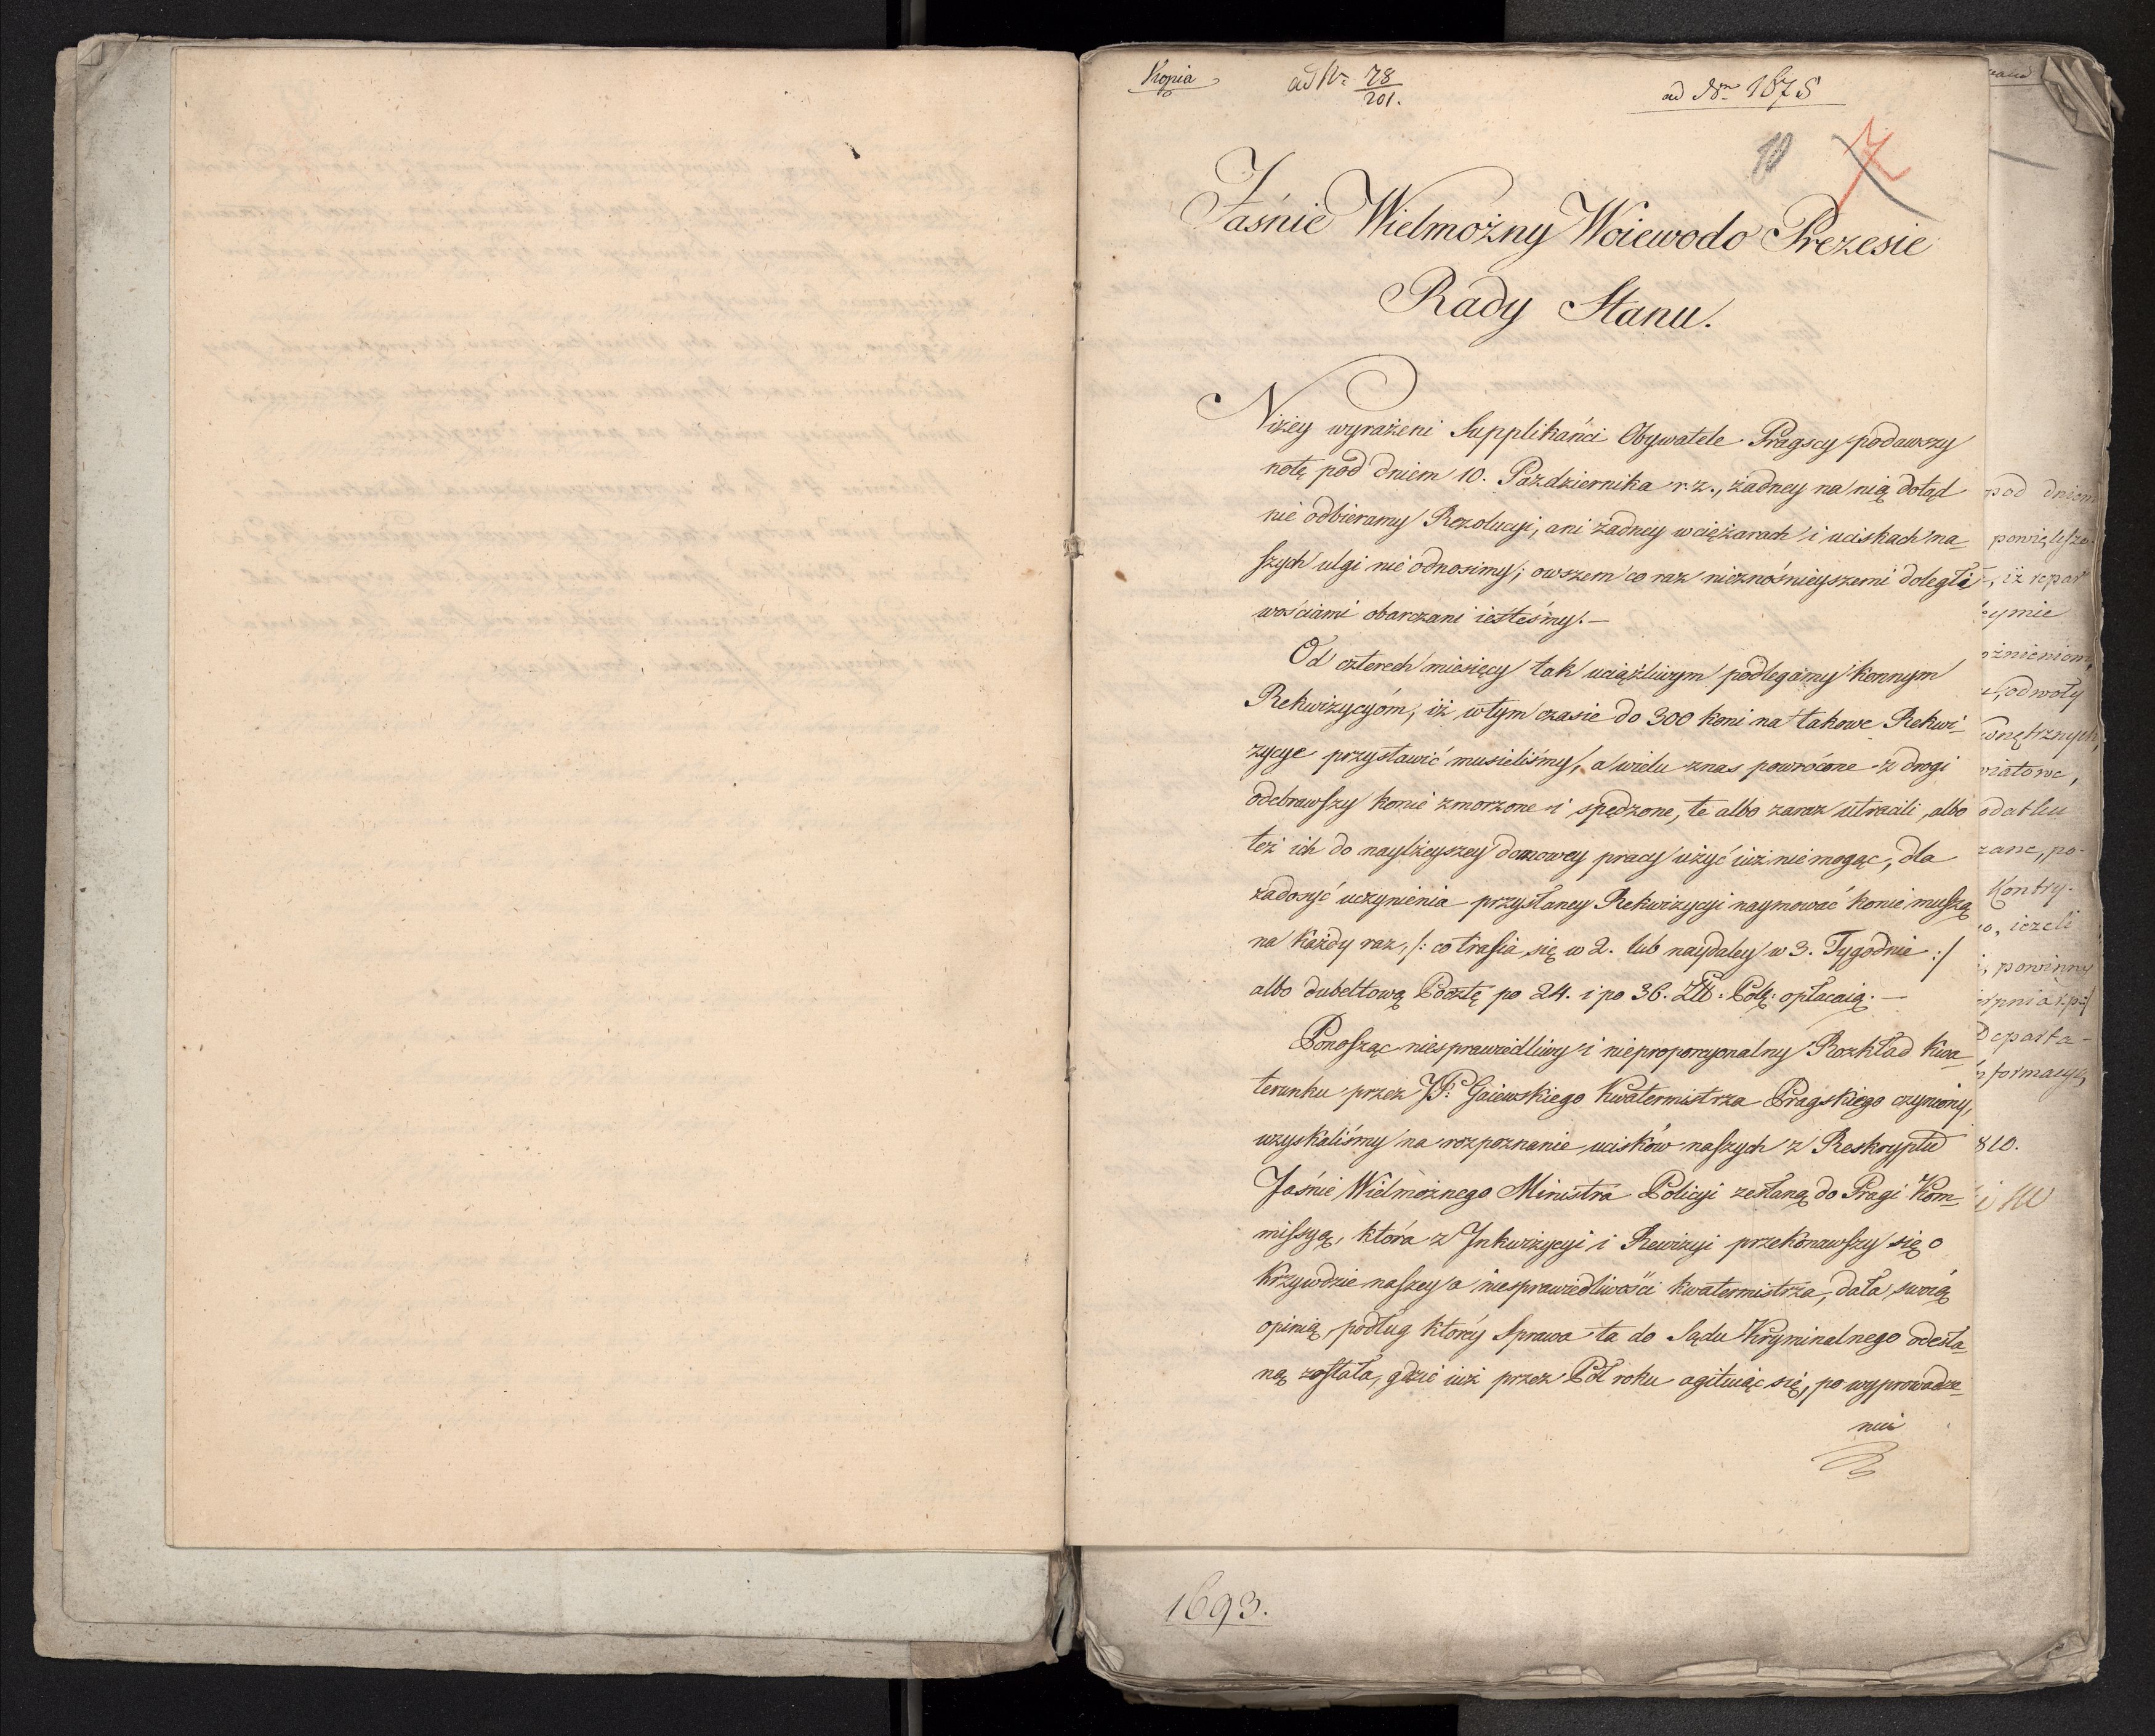 Kopia
ad Nr 78/201.
ad Nrm 1678
10
7
Jaśnie Wielmożny Woiewodo Prezesie
Rady Stanu.
Niżey wyrażeni Supplikańci Obywatele Pragscy podawszy
notę pod dniem 10. Października r. z., żadney na nią dotąd
nie odbieramy Rezolucyi, ani żadney w ciężarach i uciskach na-
szych ulgi nie odnosimy; owszem co raz nieznośnieyszemi dolegli
wościami obarczani iesteśmy. –
Od czterech miesięcy tak uciążliwym podlegamy konnym
Rekwizycyóm, iż w tym czasie do 300 koni na takowe Rekwi-
zycye przystawić musieliśmy, a wielu z nas powrócone z drogi
odebrawszy konie zmorzone i spędzone, te albo zaraz utracili, albo
też ich do naylżeyszey domowey pracy użyć iuż nie mogąc, dla
zadosyć uczynienia przysłaney Rekwizycyi naymować konie muszą
na każdy raz, /: co trafia się w 2. lub naydaley w 3. Tygodnie :/
albo dubeltową Pocztę po 24. i po 36. Złł: Pol: opłacaią. –
Ponosząc niesprawiedliwy i nieproporcyonalny Rozkład kwa-
terunku przez JP: Gaiewskiego Kwatermistrza Pragskiego czyniony,
uzyskaliśmy na rozpoznanie ucisków naszych z Reskryptu
Jaśnie Wielmożnego Ministra Policyi zesłaną do Pragi Kom-
missyą, która z Inkwizycyi i Rewizyi przekonawszy się o
krzywdzie naszey a niesprawiedliwości kwatermistrza, dała swoią
opinią, podług którey Sprawa ta do Sądu Kryminalnego odesła-
ną została, gdzie iuż przez Pół roku agituiąc się, po wyprowadze-
niu
1693.
pod dniem
powiększe-
, iż repar
eymie
ożnieniom,
odwoły
wnętrznych,
wiatowe,
odatku
zane, po-
Kontry-
o, ieżeli
, powinny
Departa-
nformacyą,
810.